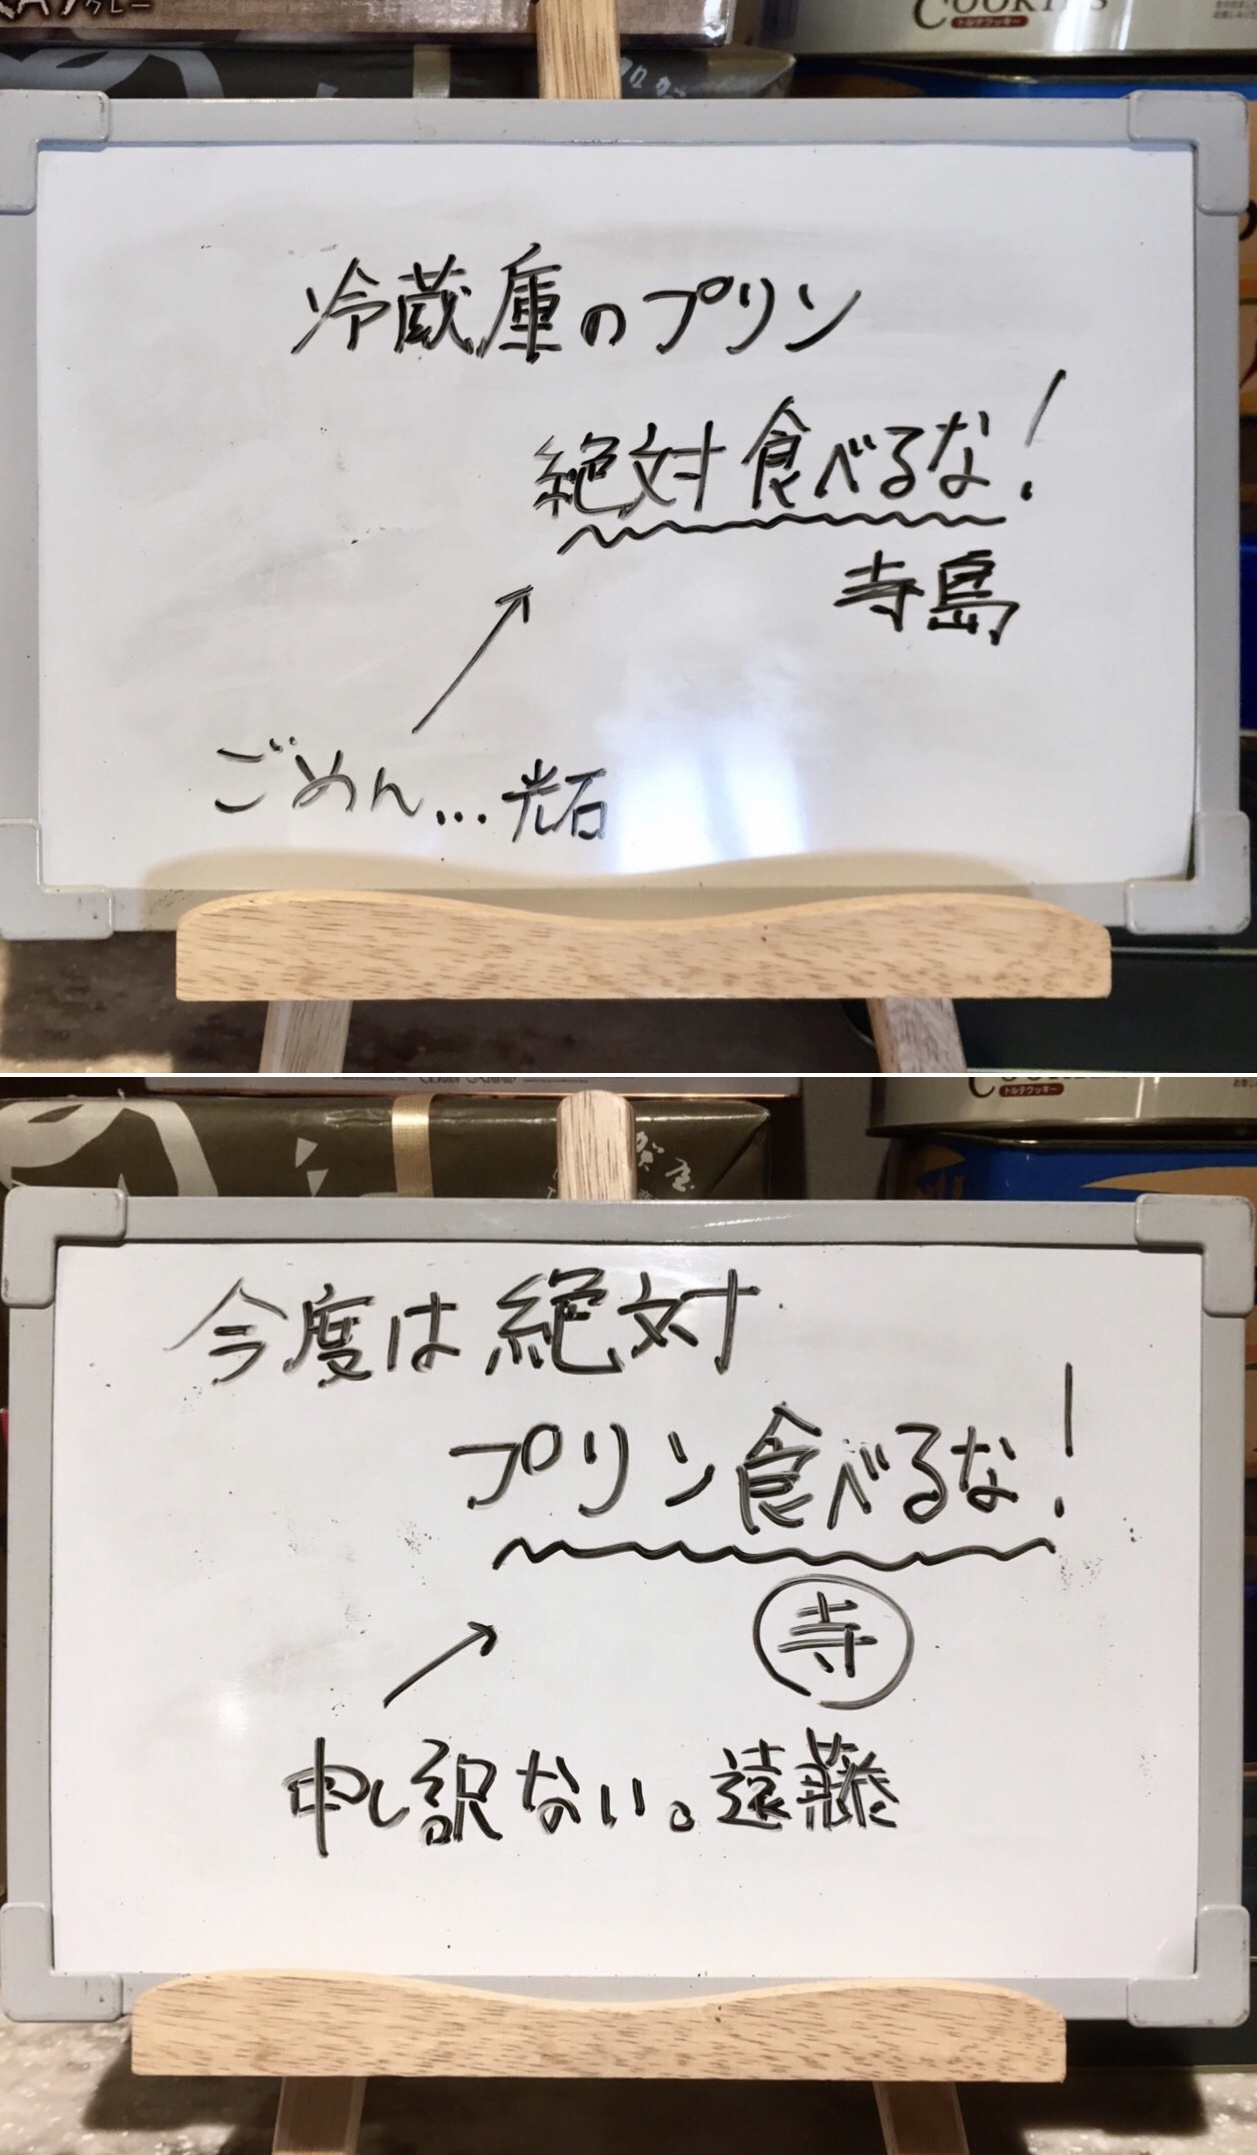 カレー
COOKIES
トルテクッキー
冷蔵庫のプリン
絶対食べるな!
寺島
ごめん...光石
トルテクッキー
今度は絶対
プリン食べるな!
寺
申し訳ない。遠藤